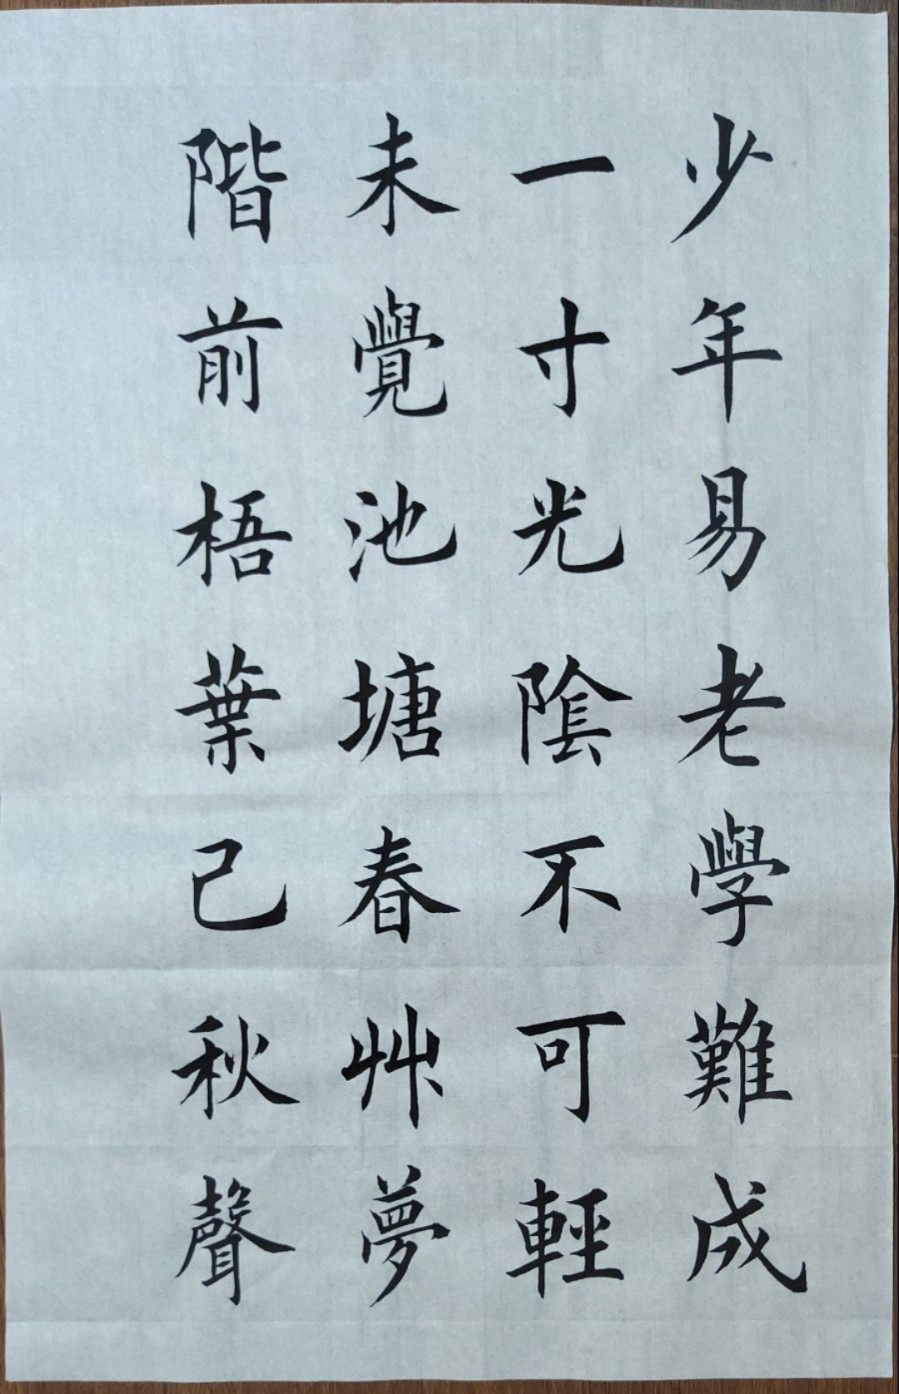 少年易老學難成
一寸光陰不可輕
未覺池塘春艸夢
階前梧葉已秋聲